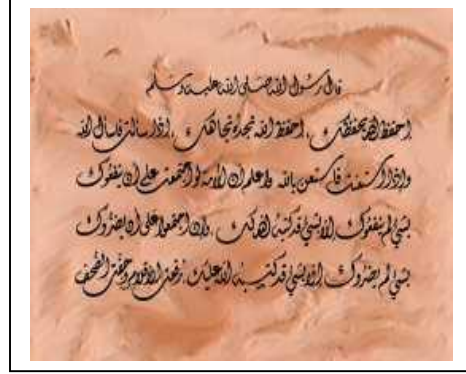 قال رسول الله صلى الله عليه وسلم
احفظ الله يحفظك ، احفظ الله تجده تجاهك ، اذا سألت فاسأل الله
واذا استعنت فاستعن بالله واعلم ان الامة لو اجتمعت على ان ينفعوك
بشئ لم ينفعوك الا بشئ قد كتبه الله لك وان اجتمعوا على ان يضروك
بشئ لم يضروك الا بشئ قد كتبه الله عليك رفعت الاقلام وجفت الصحف